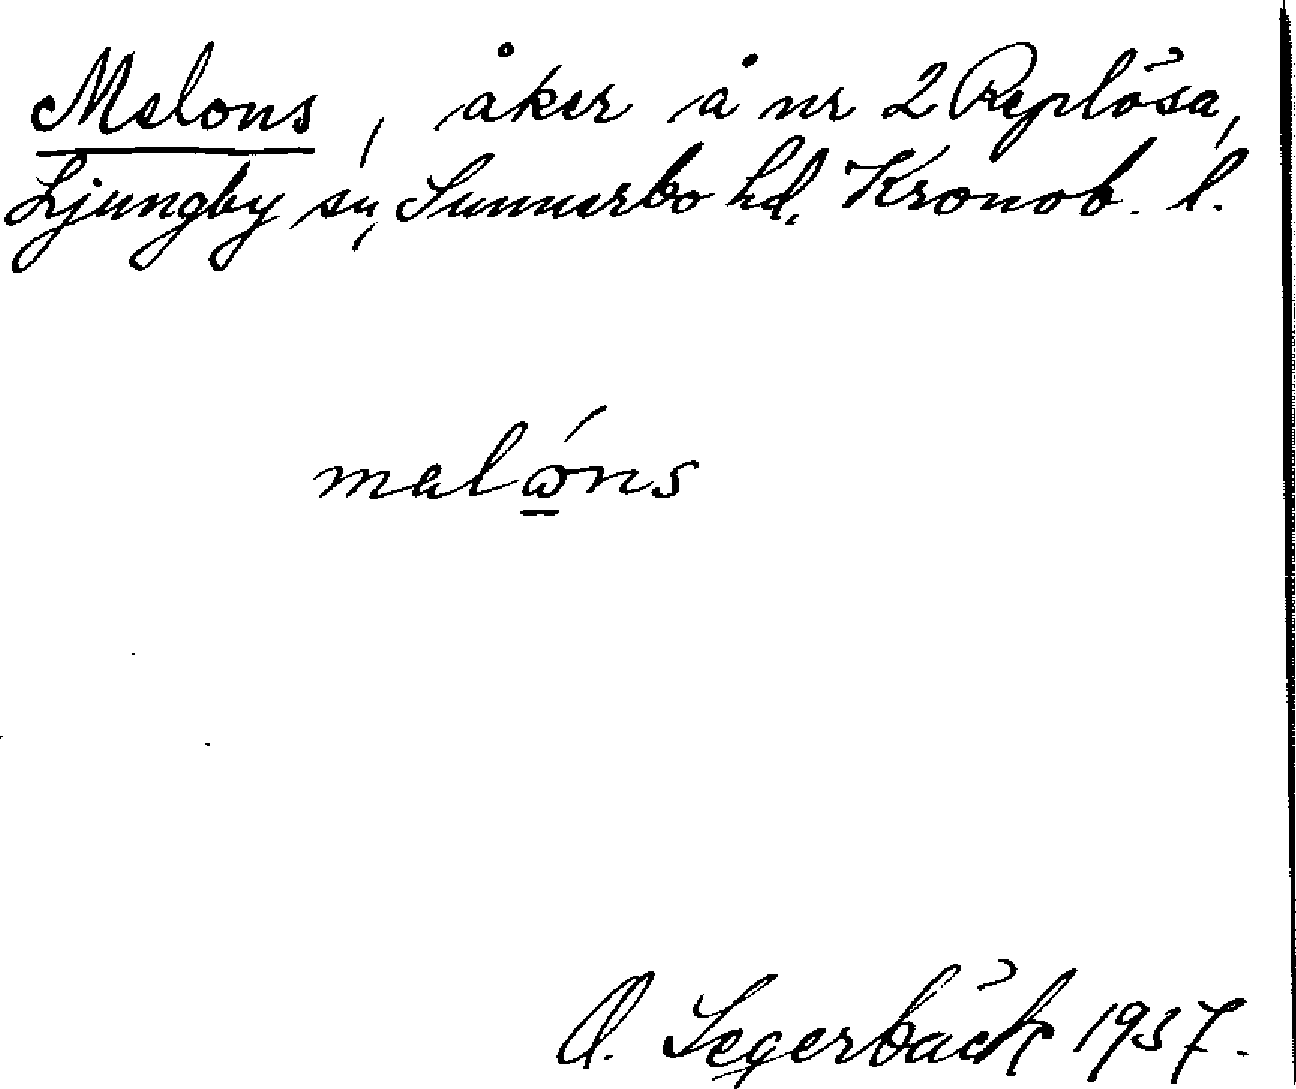 Melons, åker å nr 2 Replösa,
Ljungby sn, Sunnerbo hd, Kronob. l.
malώns
O. Segerbäck 1937.